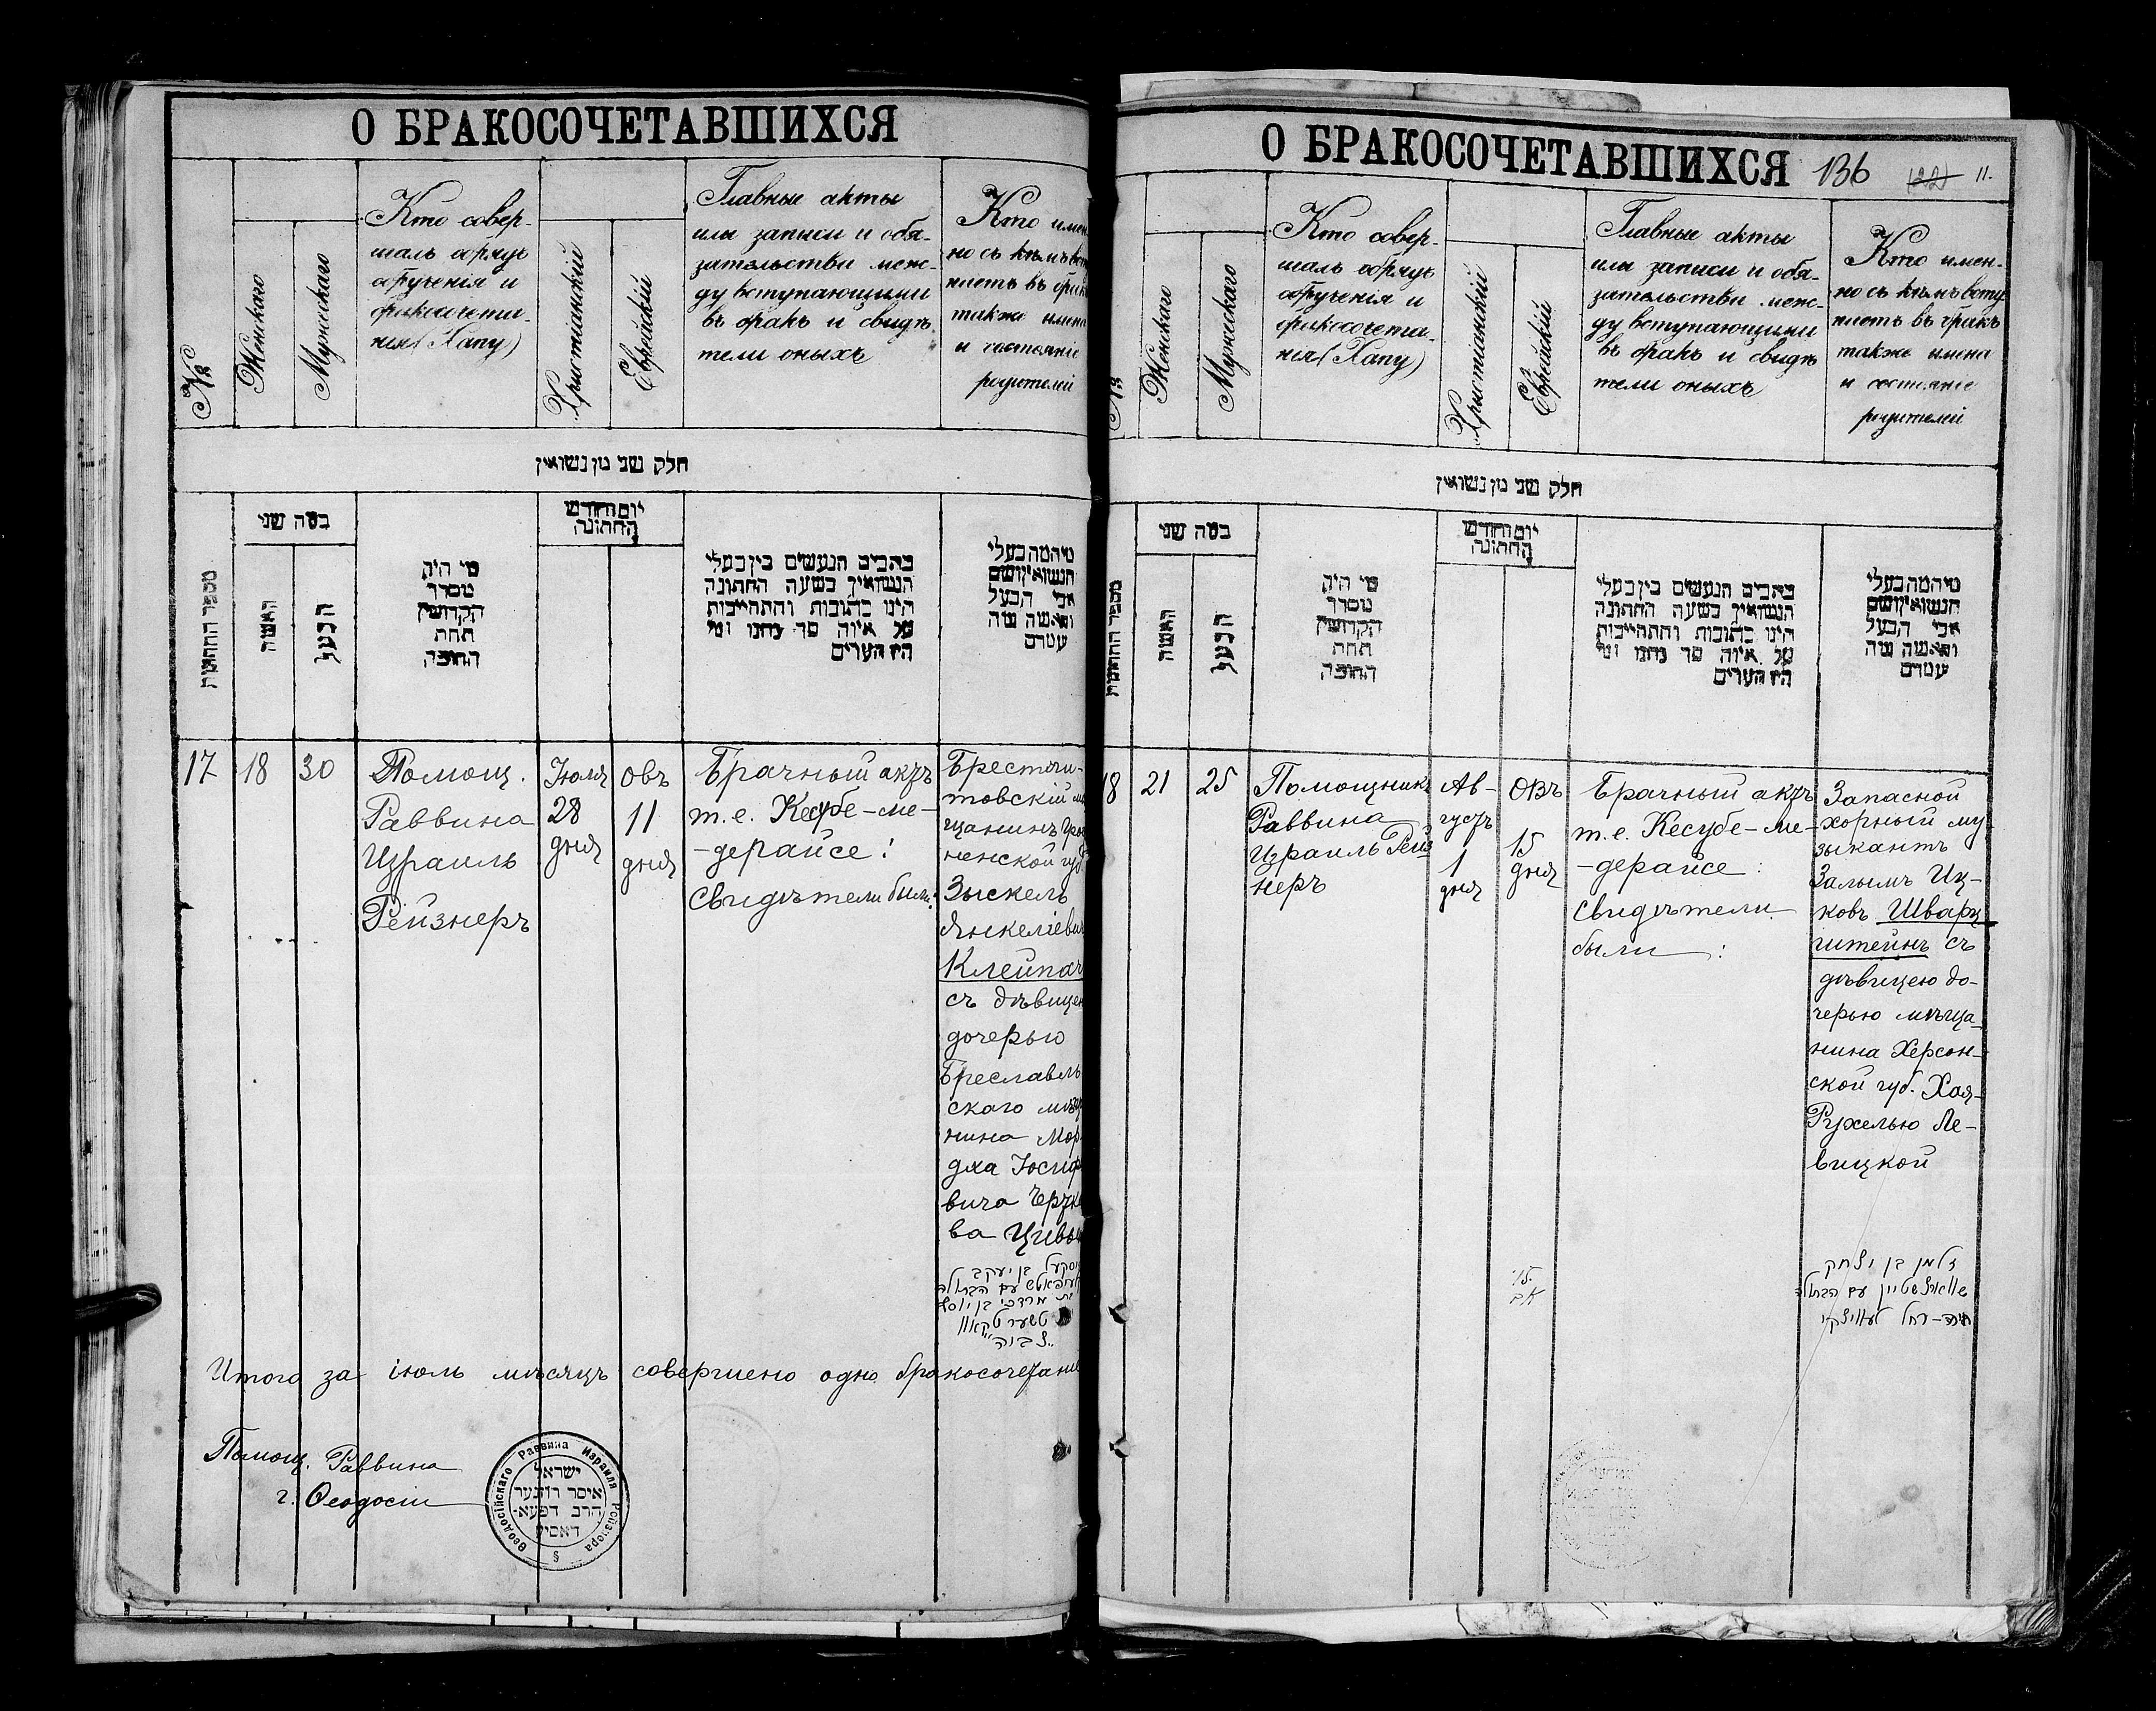 О БРАКОСОЧЕТАВШИХСЯ
№
Женскаго
Мужескаго
Кто совер-
шалъ обрядъ
обрученія и
бракосочета-
нія (Хапу)
Христіанскій
Еврейскій
Главные акты
или записи и обя-
зательства меж-
ду вступающими
въ бракъ и свидѣ-
тели оныхъ
Кто имен
но съ кѣмъ всту
паетъ въ брак
также имена
и состояніе
родителей
חלק שני מן נשואין
מספר החתונות
כמה שני
האשה
הבעל
מי היה
מסדר
הקדושין
תחת
החופה
יום וחודש
החתונה
כתבים הנעשים בין בעלי
הנשואין בשעה החתונה
היינו כתובות והתחייבות
על איזה סך נתנו ומי
היו הערים
מי המה בעלי
הנשואין ושם
אבי הבעל
והאשה ומה
עמדם
17
18
30
Помощ.
Раввина
Израиль
Рейзнеръ
Іюля
28
дня
Овъ
11
дня
Брачный актъ
т.е. Кесубе-ме-
-дерайсе:
Свидѣтели были:
Брестли-
товскій мѣ
щанинъ Грод
ненской губ
Зыскель
Янкеліевич
Клейпач
съ дѣвицею
дочерью
Бреславль
скаго мѣща
нина Мор
дка Іосифо
вича Чертко
ва Цивьи
זוסקעל בן יעקב
קלעפאטש עם הבתולה
בת מרדכי בן יוסף
טשערטקאוו
צבוה
Итого за іюль мѣсяцъ совершено одно бракосочетаніе
Помощ. Раввина
г. Ѳеодосіи
Ѳеодосійскаго Раввина Израиля Рейзнера
ישראל
איסר רייזנער
הרב דפעא-
דאסיע
О БРАКОСОЧЕТАВШИХСЯ 136 11.
№
Женскаго
Мужескаго
Кто совер-
шалъ обрядъ
обрученія и
бракосочета-
нія (Хапу)
Христіанскій
Еврейскій
Главные акты
или записи и обя-
зательства меж-
ду вступающими
въ бракъ и свидѣ
тели оныхъ
Кто имен-
но съ кѣмъ всту
паетъ въ бракъ
также имена
и состояніе
родителей
חלק שני מן נשואין
מספר החתונות
כמה שני
האשה
הבעל
מי היה
מסדר
הקדושין
תחת
החופה
יום וחודש
החתונה
כתבים הנעשים בין בעלי
הנשואין בשעה החתונה
היינו כתובות והתחייבות
על איזה סך נתנו ומי
היו הערים
מי המה בעלי
הנשואין ושם
אבי הבעל
והאשה ומה
עמדם
18
21
25
Помощникъ
Раввина
Израиль Рейз
неръ
Ав-
густъ
1
дня
Овъ
15
дня
Брачный актъ
т.е. Кесубе-ме-
-дерайсе:
Свидѣтели
были:
Запасной
хорный му
зыкантъ
Залымъ Иц-
ковъ Шварц
штейнъ съ
дѣвицею до-
черью мѣща
нина Херсон-
ской губ. Хая-
Рухелью Ле-
вицкой
15
אב
זלמן בן יצחק
שווארצשטיין עם הבתולה
חיה-רחל לעוויצקי